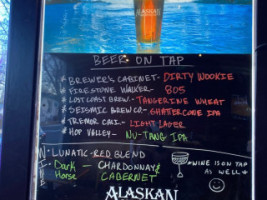 ALASKAN
BEER ON TAP
* BREWER'S CABINET- DIRTY WOOKIE
* FIRESTONE WALKER- 805
* LOST COAST BREW- TANGERINE WHEAT
* SEISMIC BREW CO- SHATTERCONE IPA
* TREMOR CALI- LIGHT LAGER
* HOP VALLEY- NU-TANG IPA
LUNATIC-RED BLEND
Dark Horse - CHARDONNAY &
CABERNET
*WINE IS ON TAP
AS WELL
ALASKAN